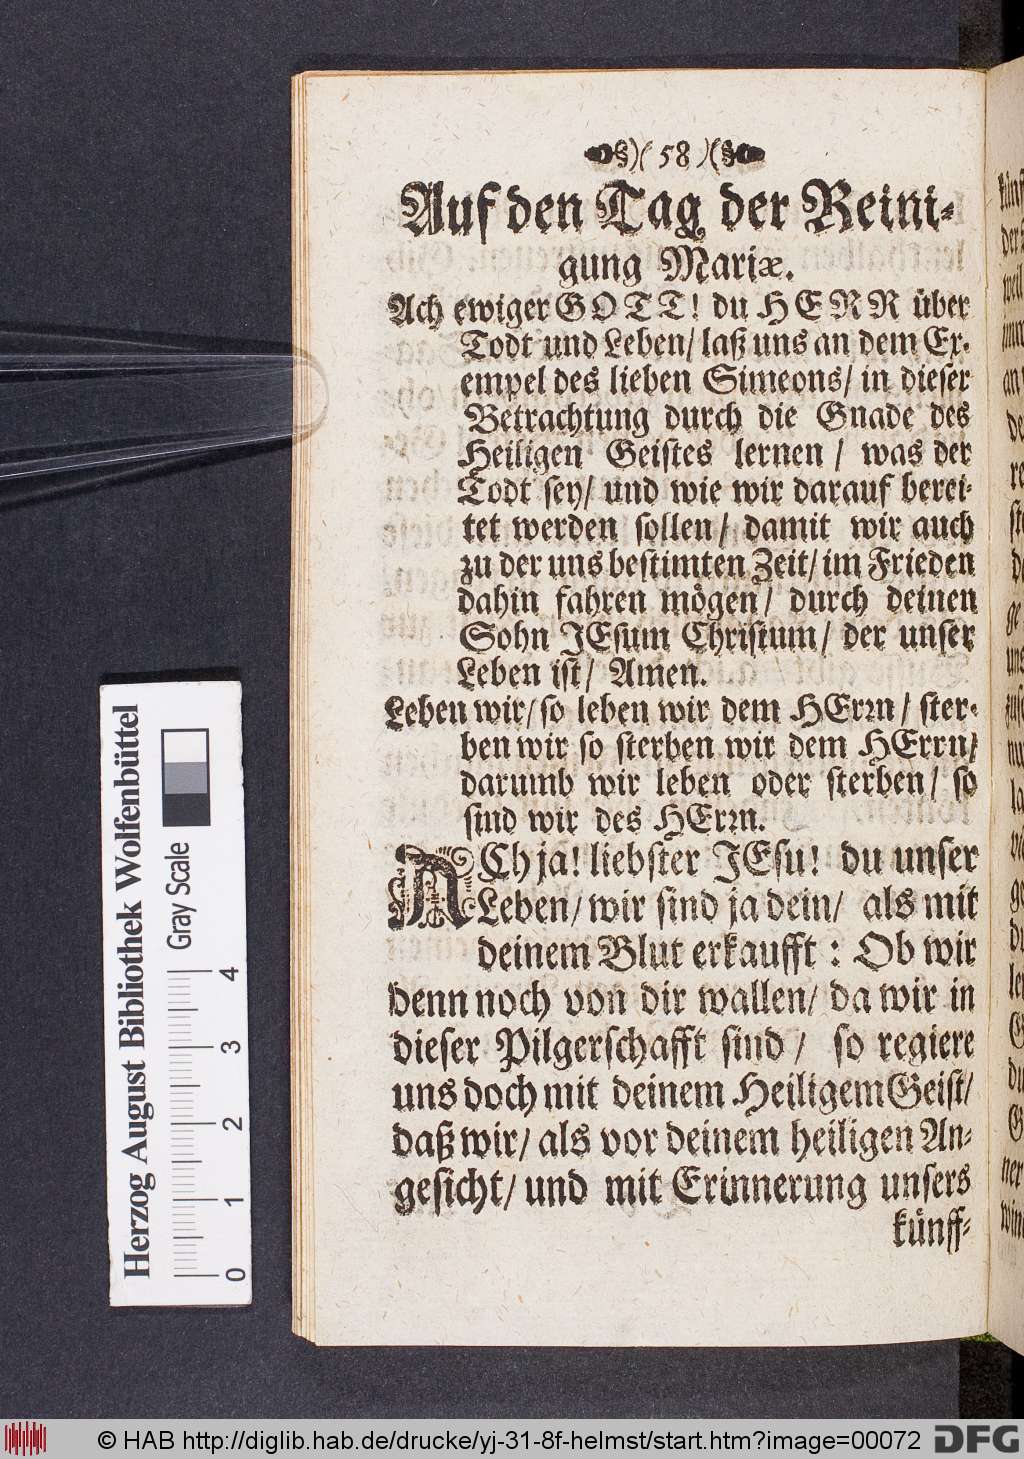 )( 58 )(
Auf den Tag der Reini-
gung Mariæ.
Ach ewiger GOTT! du HERR über
Todt und Leben/ laß uns an dem Ex-
empel des lieben Simeons/ in dieser
Betrachtung durch die Gnade des
Heiligen Geistes lernen / was der
Todt sey/ und wie wir darauf berei-
tet werden sollen/ damit wir auch
zu der uns bestimten Zeit/ im Frieden
dahin fahren mögen/ durch deinen
Sohn JEsum Christum/ der unser
Leben ist/ Amen.
Leben wir/ so leben wir dem HErrn/ ster-
ben wir so sterben wir dem HErrn/
darumb wir leben oder sterben/ so
sind wir des HErrn.
ACh ja! liebster JEsu! du unser
Leben/ wir sind ja dein/ als mit
deinem Blut erkaufft : Ob wir
denn noch von dir wallen/ da wir in
dieser Pilgerschafft sind / so regiere
uns doch mit deinem Heiligem Geist/
daß wir/ als vor deinem heiligen An-
gesicht/ und mit Erinnerung unsers
künff-
Herzog August Bibliothek Wolfenbüttel
Gray Scale
0 1 2 3 4
© HAB http://diglib.hab.de/drucke/yj-31-8f-helmst/start.htm?image=00072
DFG